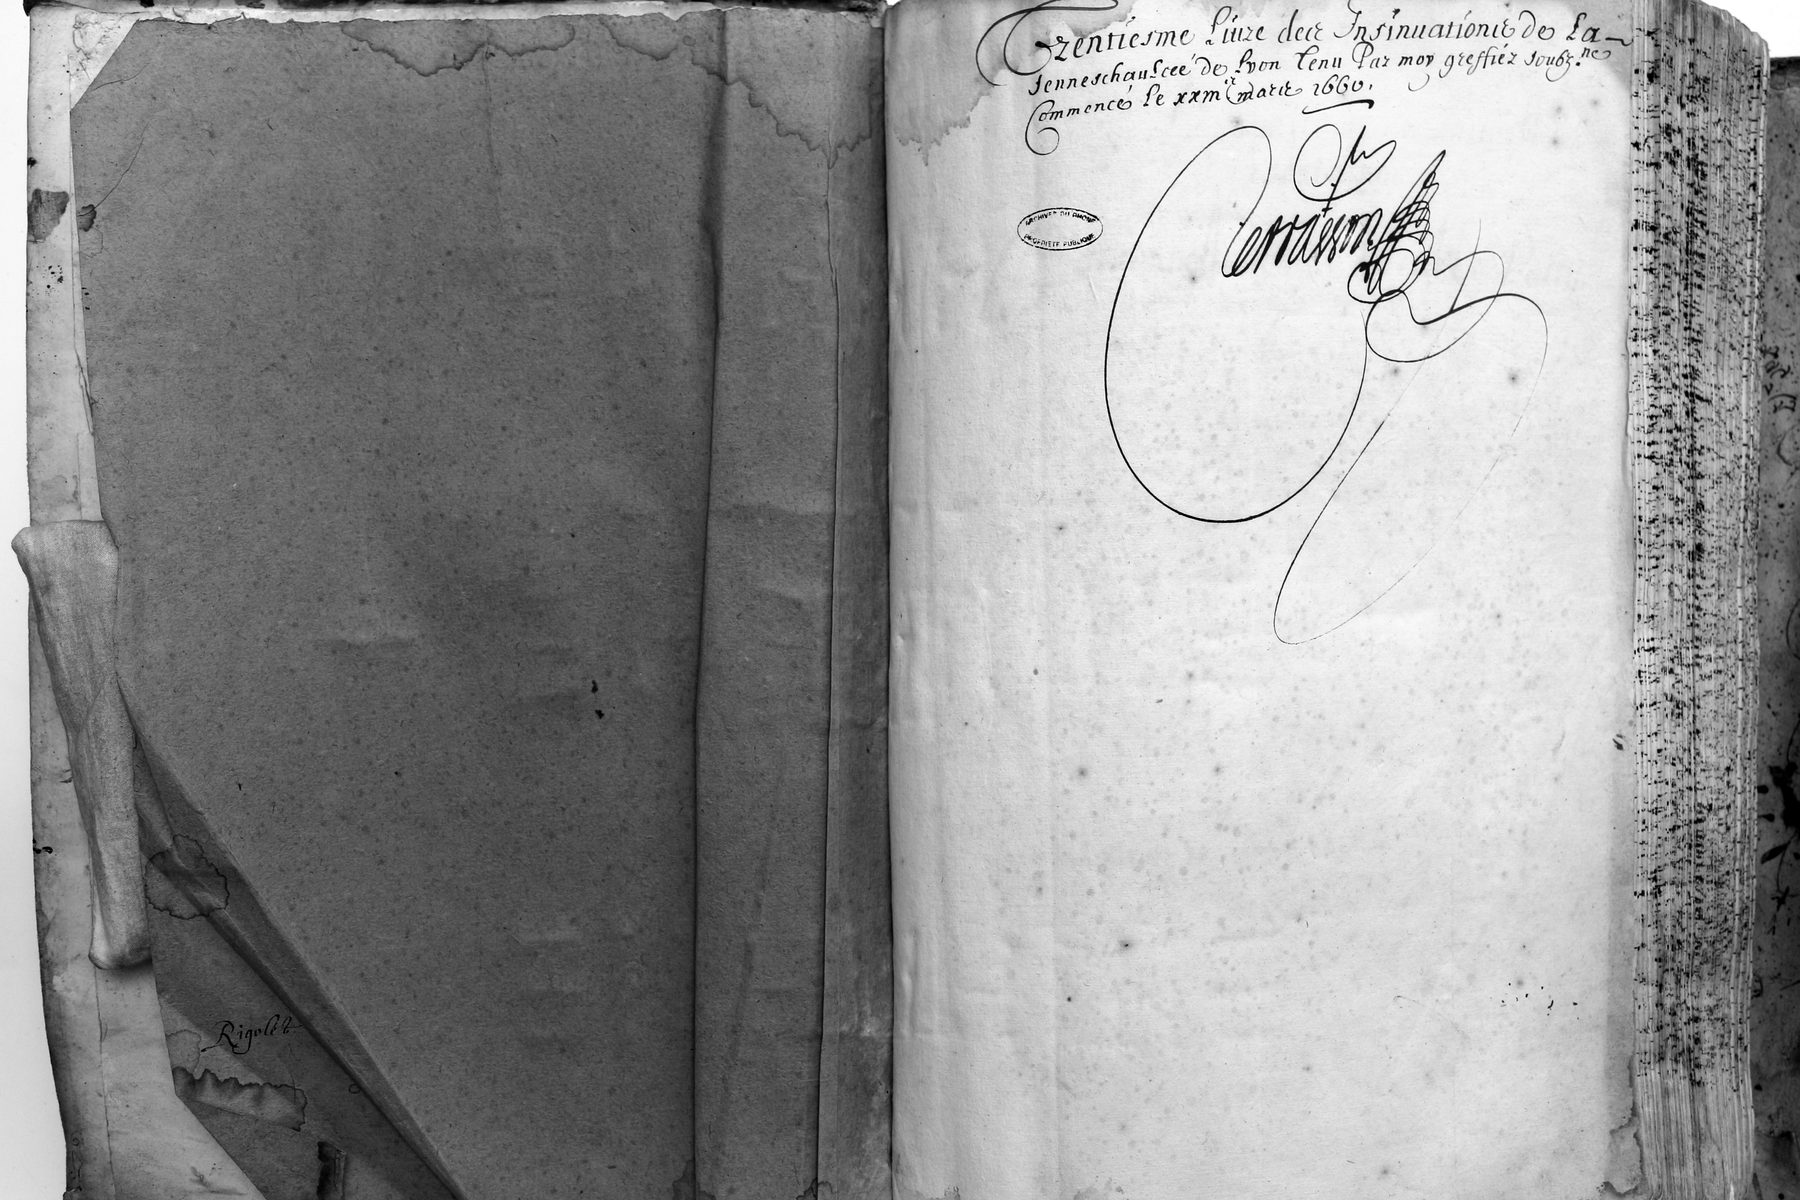 Trentiesme Liure des Insinuations de La
senneschaulceé de Lyon tenu Par moy greffier soubz.ne
Commencé Le xxiii.e mars 1660.
Terrasson
ARCHIVES DU RHONE
PROPRIÉTÉ PUBLIQUE
Rigolet